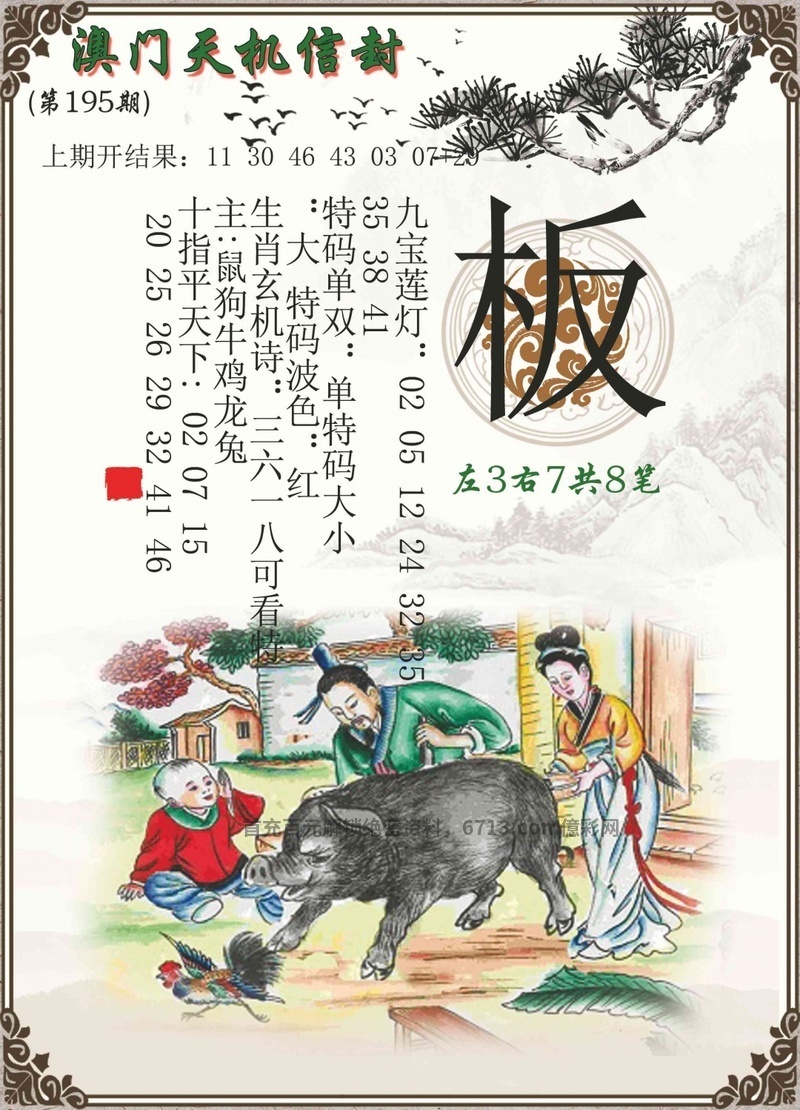 澳门天机信封
(第195期)
上期开结果：11 30 46 43 03 07+29
板
左3右7共8笔
九宝莲灯：02 05 12 24 32 35
35 38 41
特码单双：单特码大小
：大 特码波色：红
生肖玄机诗：三六一八可看特
主:鼠狗牛鸡龙兔
十指平天下：02 07 15
20 25 26 29 32 41 46
首充百元解锁绝密资料，6713.com億彩网